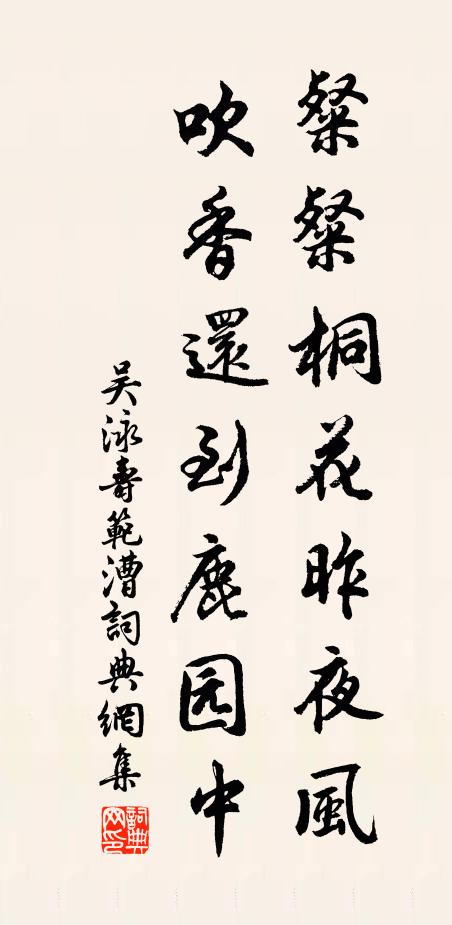 粲粲桐花昨夜風
吹香還到鹿园中
吴泳壽範漕詞典網集
詞典
网印